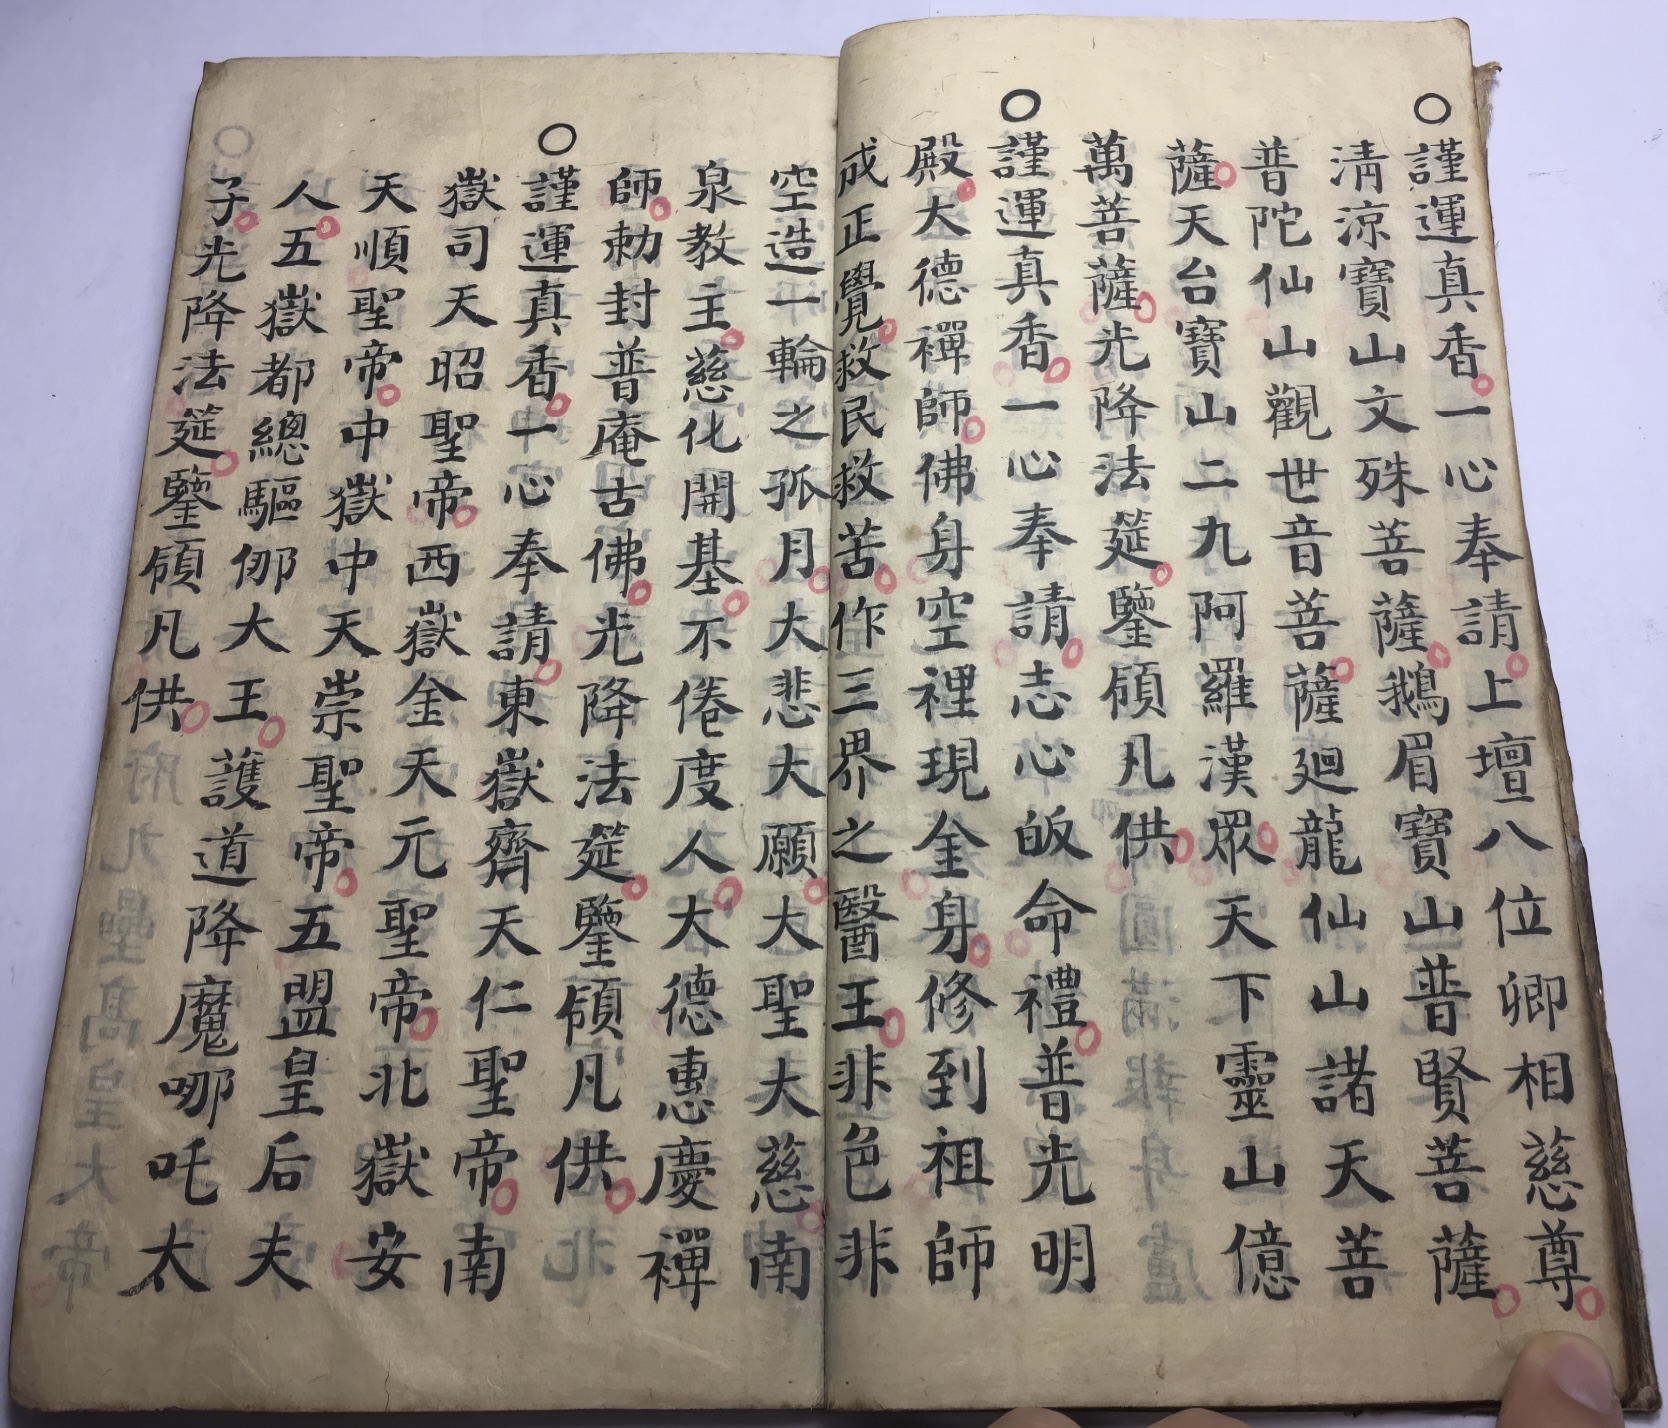 〇謹運真香一心奉請上壇八位卿相慈尊
清涼寶山文殊菩薩鵝眉寶山普賢菩薩
普陀仙山觀世音菩薩廻龍仙山諸天菩
薩天台寶山二九阿羅漢眾天下靈山億
萬菩薩光降法筵鑒領凡供
〇謹運真香一心奉請志心皈命禮普光明
殿大德禪師佛身空裡現金身修到祖師
成正覺救民救苦作三界之醫王非色非
空造一輪之孤月大悲大願大聖大慈南
泉教主慈化開基不倦度人大德惠慶禪
師勅封普庵古佛光降法筵鑒領凡供
〇謹運真香一心奉請東嶽齊天仁聖帝南
嶽司天昭聖帝西嶽金天元聖帝北嶽安
天順聖帝中嶽中天崇聖帝五盟皇后夫
人五嶽都總驅𨚗大王護道降魔哪吒太
子光降法筵鑒領凡供